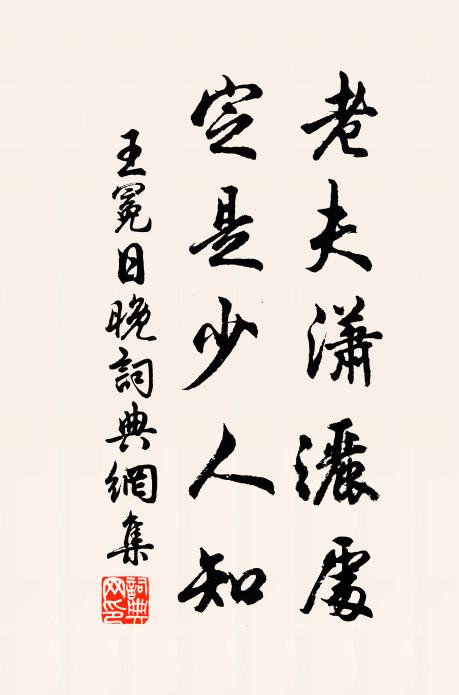 老夫瀟灑處
定是少人知
王冕日晚詞典網集
詞典網印